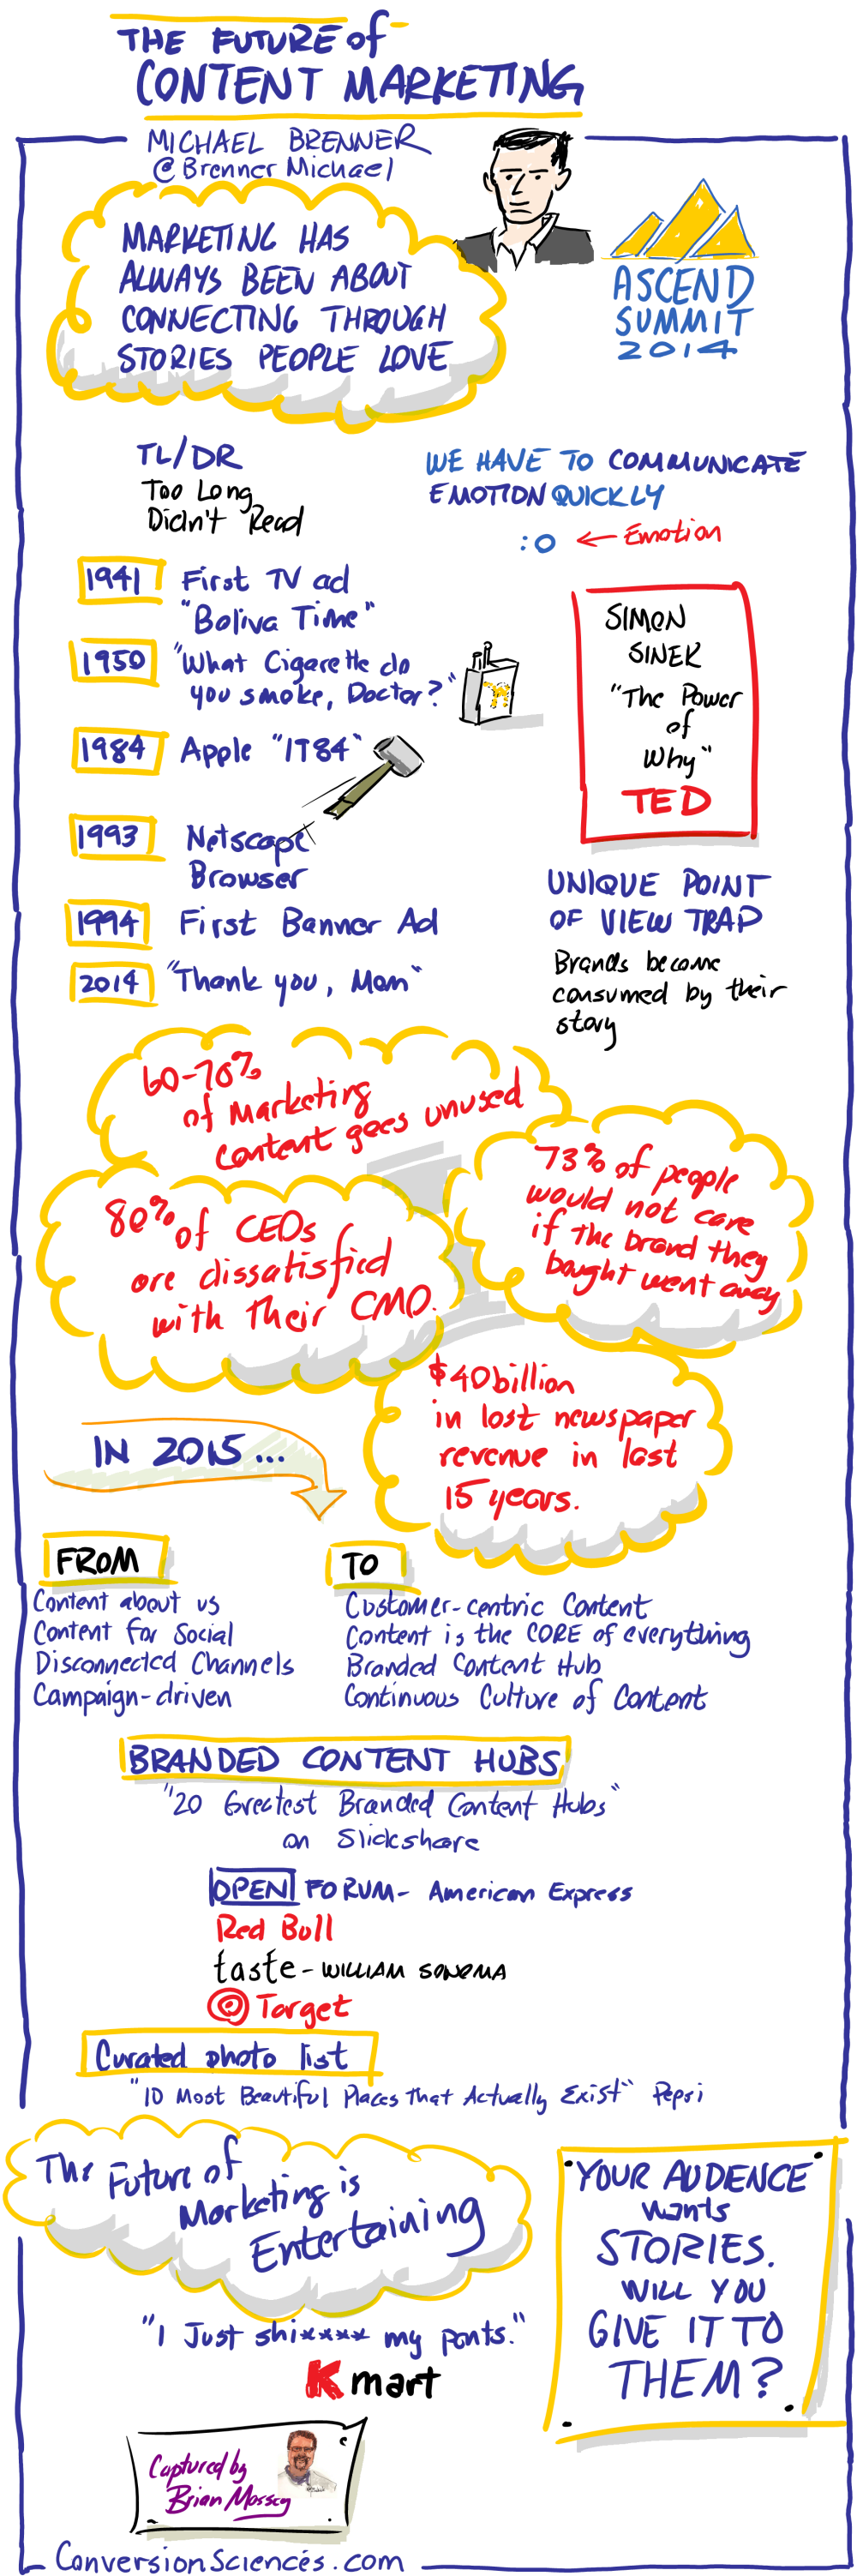 THE FUTURE of
CONTENT MARKETING
MICHAEL BRENNER
@BrennerMichael
MARKETING HAS
ALWAYS BEEN ABOUT
CONNECTING THROUGH
STORIES PEOPLE LOVE
ASCEND
SUMMIT
2014
TL/DR
Too Long
Didn't Read
WE HAVE TO COMMUNICATE
EMOTION QUICKLY
:O ← Emotion
1941 First TV ad
"Boliva Time"
1950 "What Cigarette do
you smoke, Doctor?"
1984 Apple "1984"
1993 Netscape
Browser
1994 First Banner Ad
2014 "Thank you, Mom"
SIMON
SINEK
"The Power
of
Why"
TED
UNIQUE POINT
OF VIEW TRAP
Brands become
consumed by their
story
60-70%
of Marketing
content goes unused
73% of people
would not care
if the brand they
bought went away
80% of CEOs
are dissatisfied
with their CMO.
$40 billion
in lost newspaper
revenue in last
15 years.
IN 2015...
FROM
Content about us
Content for Social
Disconnected Channels
Campaign-driven
TO
Customer-centric Content
Content is the CORE of everything
Branded Content Hub
Continuous Culture of Content
BRANDED CONTENT HUBS
"20 Greatest Branded Content Hubs"
on Slideshare
OPEN FORUM- American Express
Red Bull
taste-WILLIAM SONOMA
Target
Curated photo list
"10 Most Beautiful Places That Actually Exist" Pepsi
The Future of
Marketing is
Entertaining
"I Just shi**** my pants."
Kmart
YOUR AUDIENCE
wants
STORIES.
WILL YOU
GIVE IT TO
THEM?
Captured by
Brian Massey
ConversionSciences.com